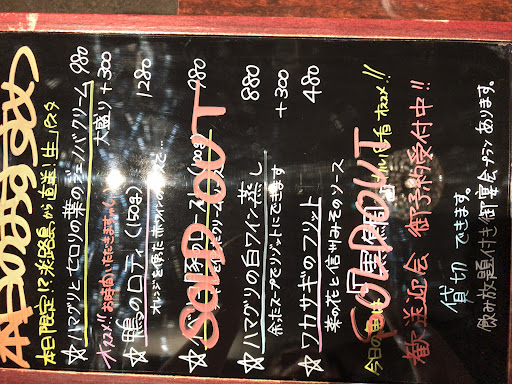 本日のおすすめ
本日限定!?淡路島から直送!生パスタ
☆ハマグリとセロリの葉のジェノバクリーム 980
オススメ!!お時間いただきます。 大盛り+300
☆鴨のロティ(150g) 1280
オレンジを使った赤ワイン
SOLD OUT
980
☆ハマグリの白ワイン蒸し 880
余ったスープでリゾットにできます +300
☆ワカサギのフリット 480
菜の花と信州みそのソース
今日の
SOLD OUT
オススメ!!
歓送迎会 御予約受付中!!
貸切 できます。
飲み放題付き御宴会プランあります。